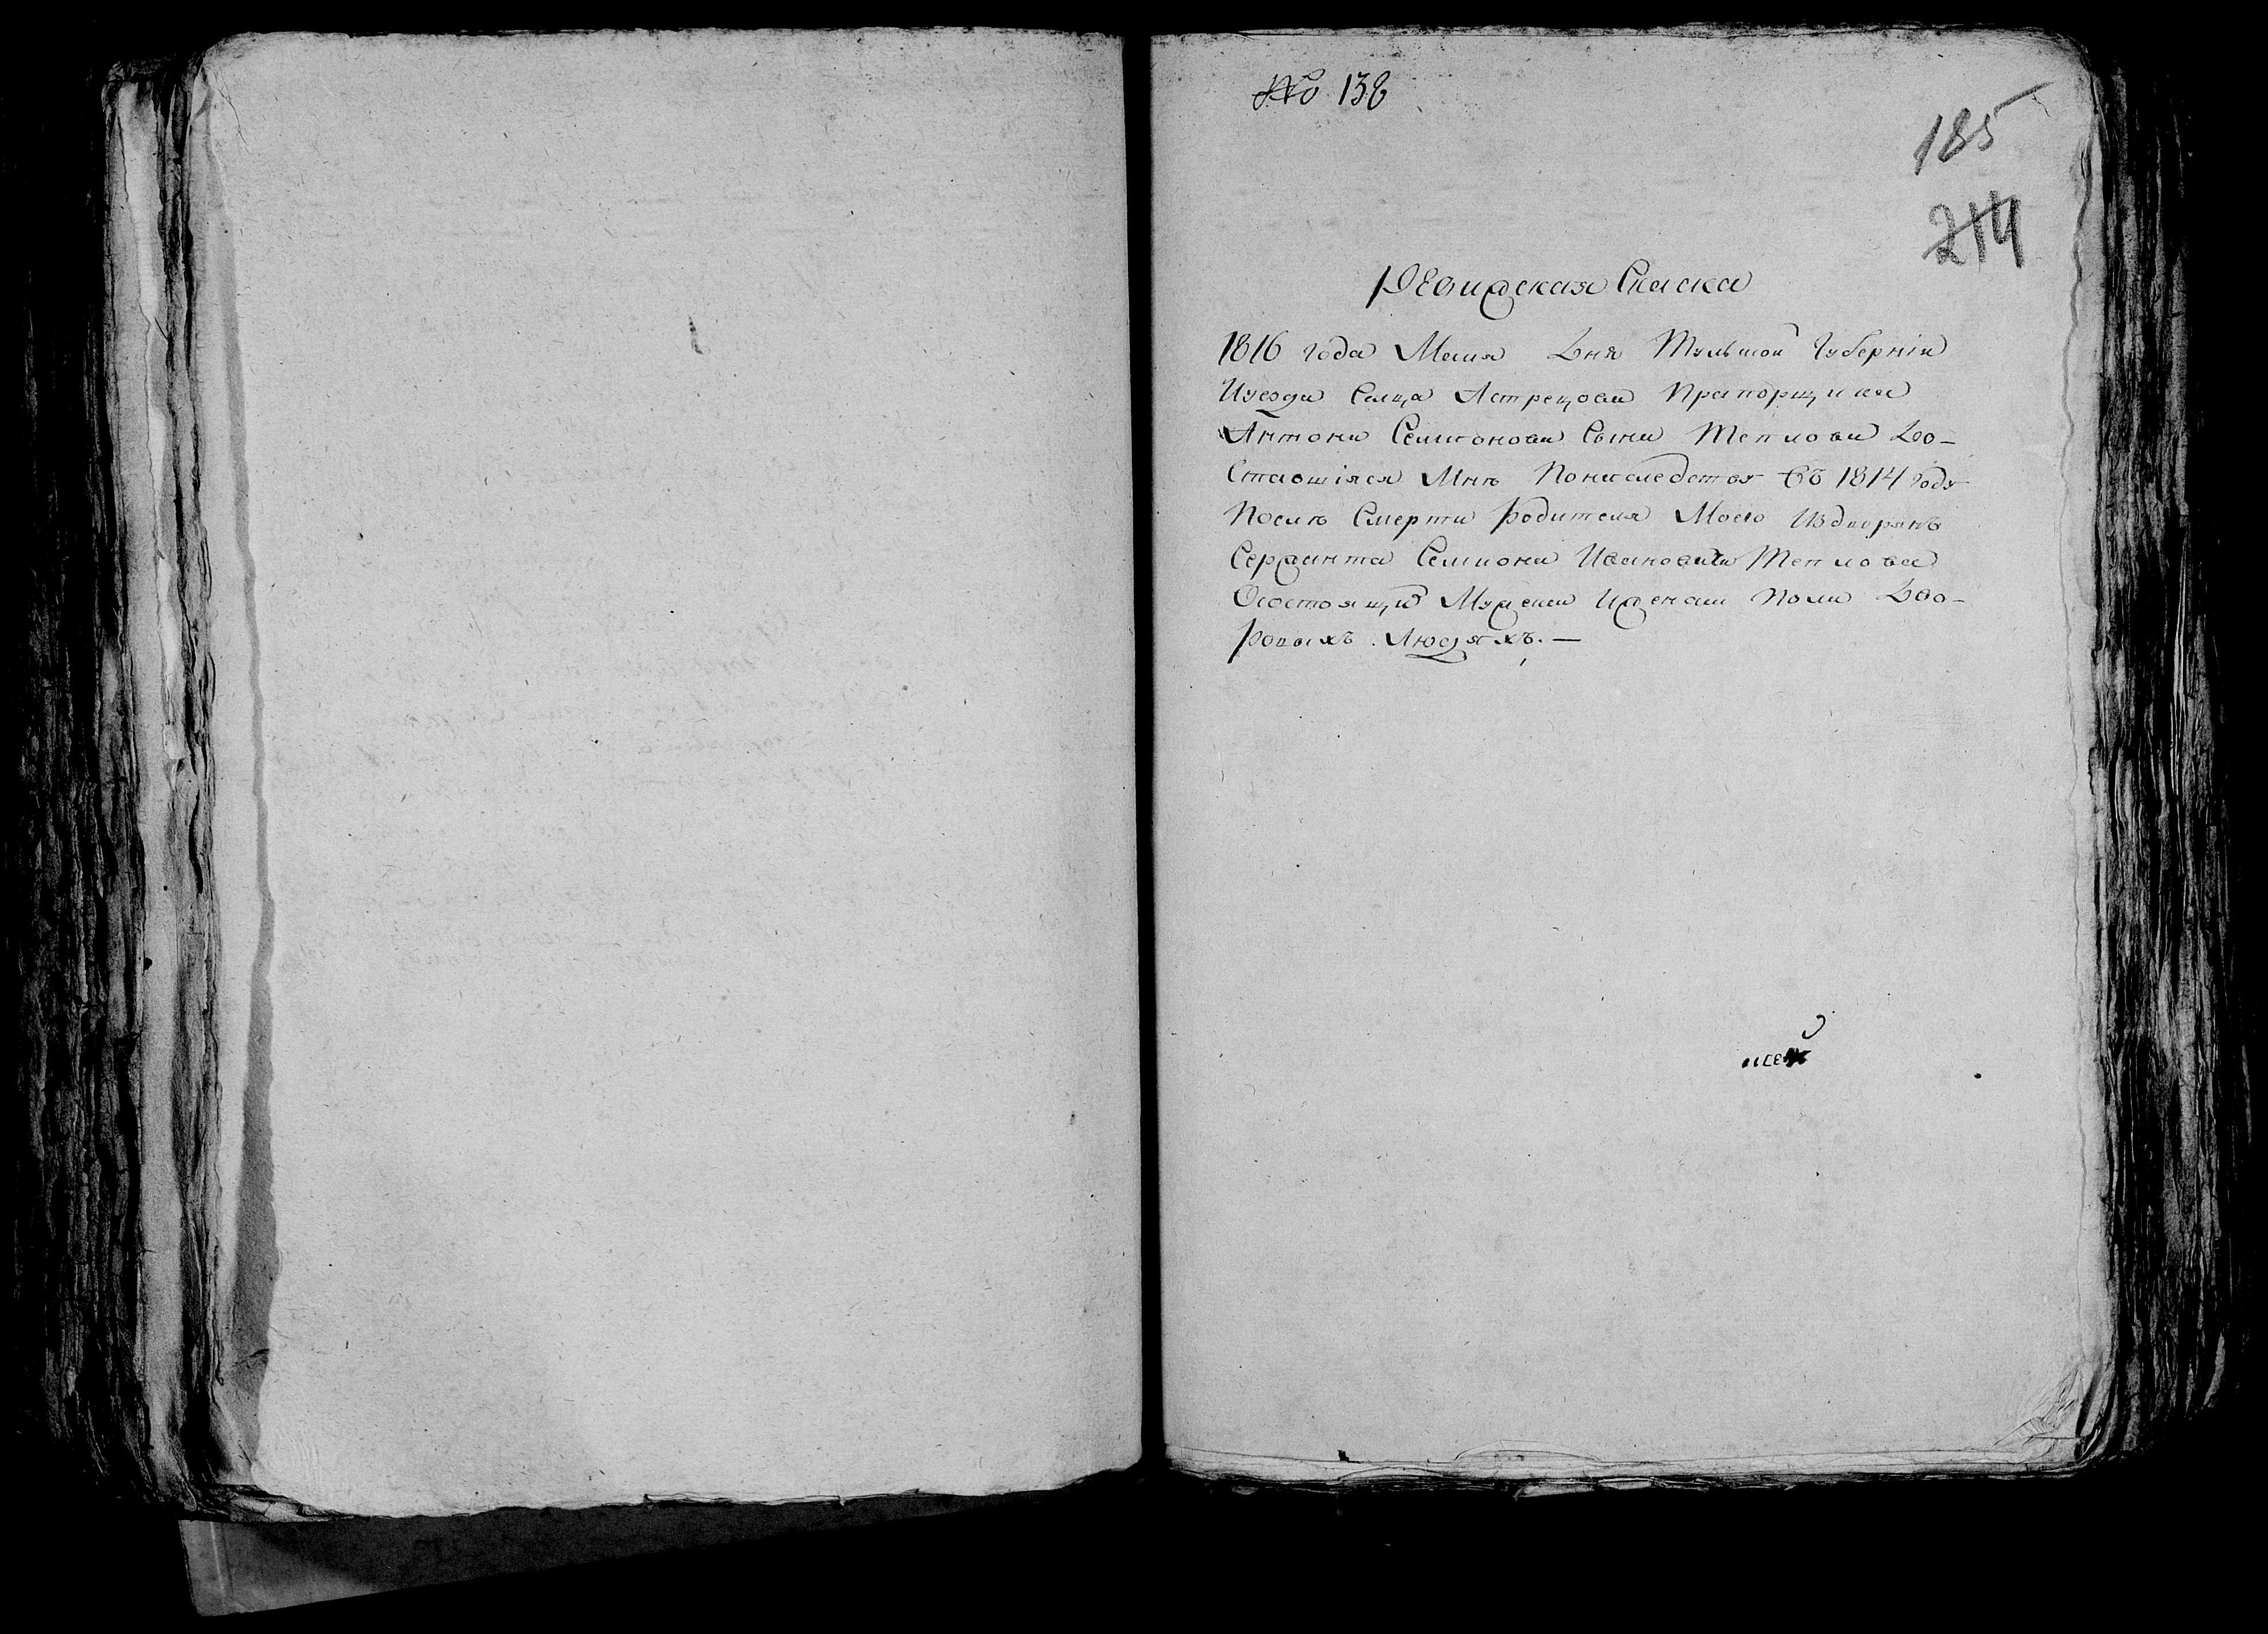 № 138
185
214
Ревижская Скаска
1816 года Маия Дня Тульской Губернiи
Иуезда Селца Астрецова Прапорщика
Антона Семионова Сына Теплова До-
Ставшiяся Мнѣ Понаследству Въ 1814 Году
Послѣ Смерти Родителя Моего Издворянъ
Сержанта Семиона Иванова Теплова
Осостоящих Мужеска Иженска Пола Дво-
ровыхъ Людяхъ. —